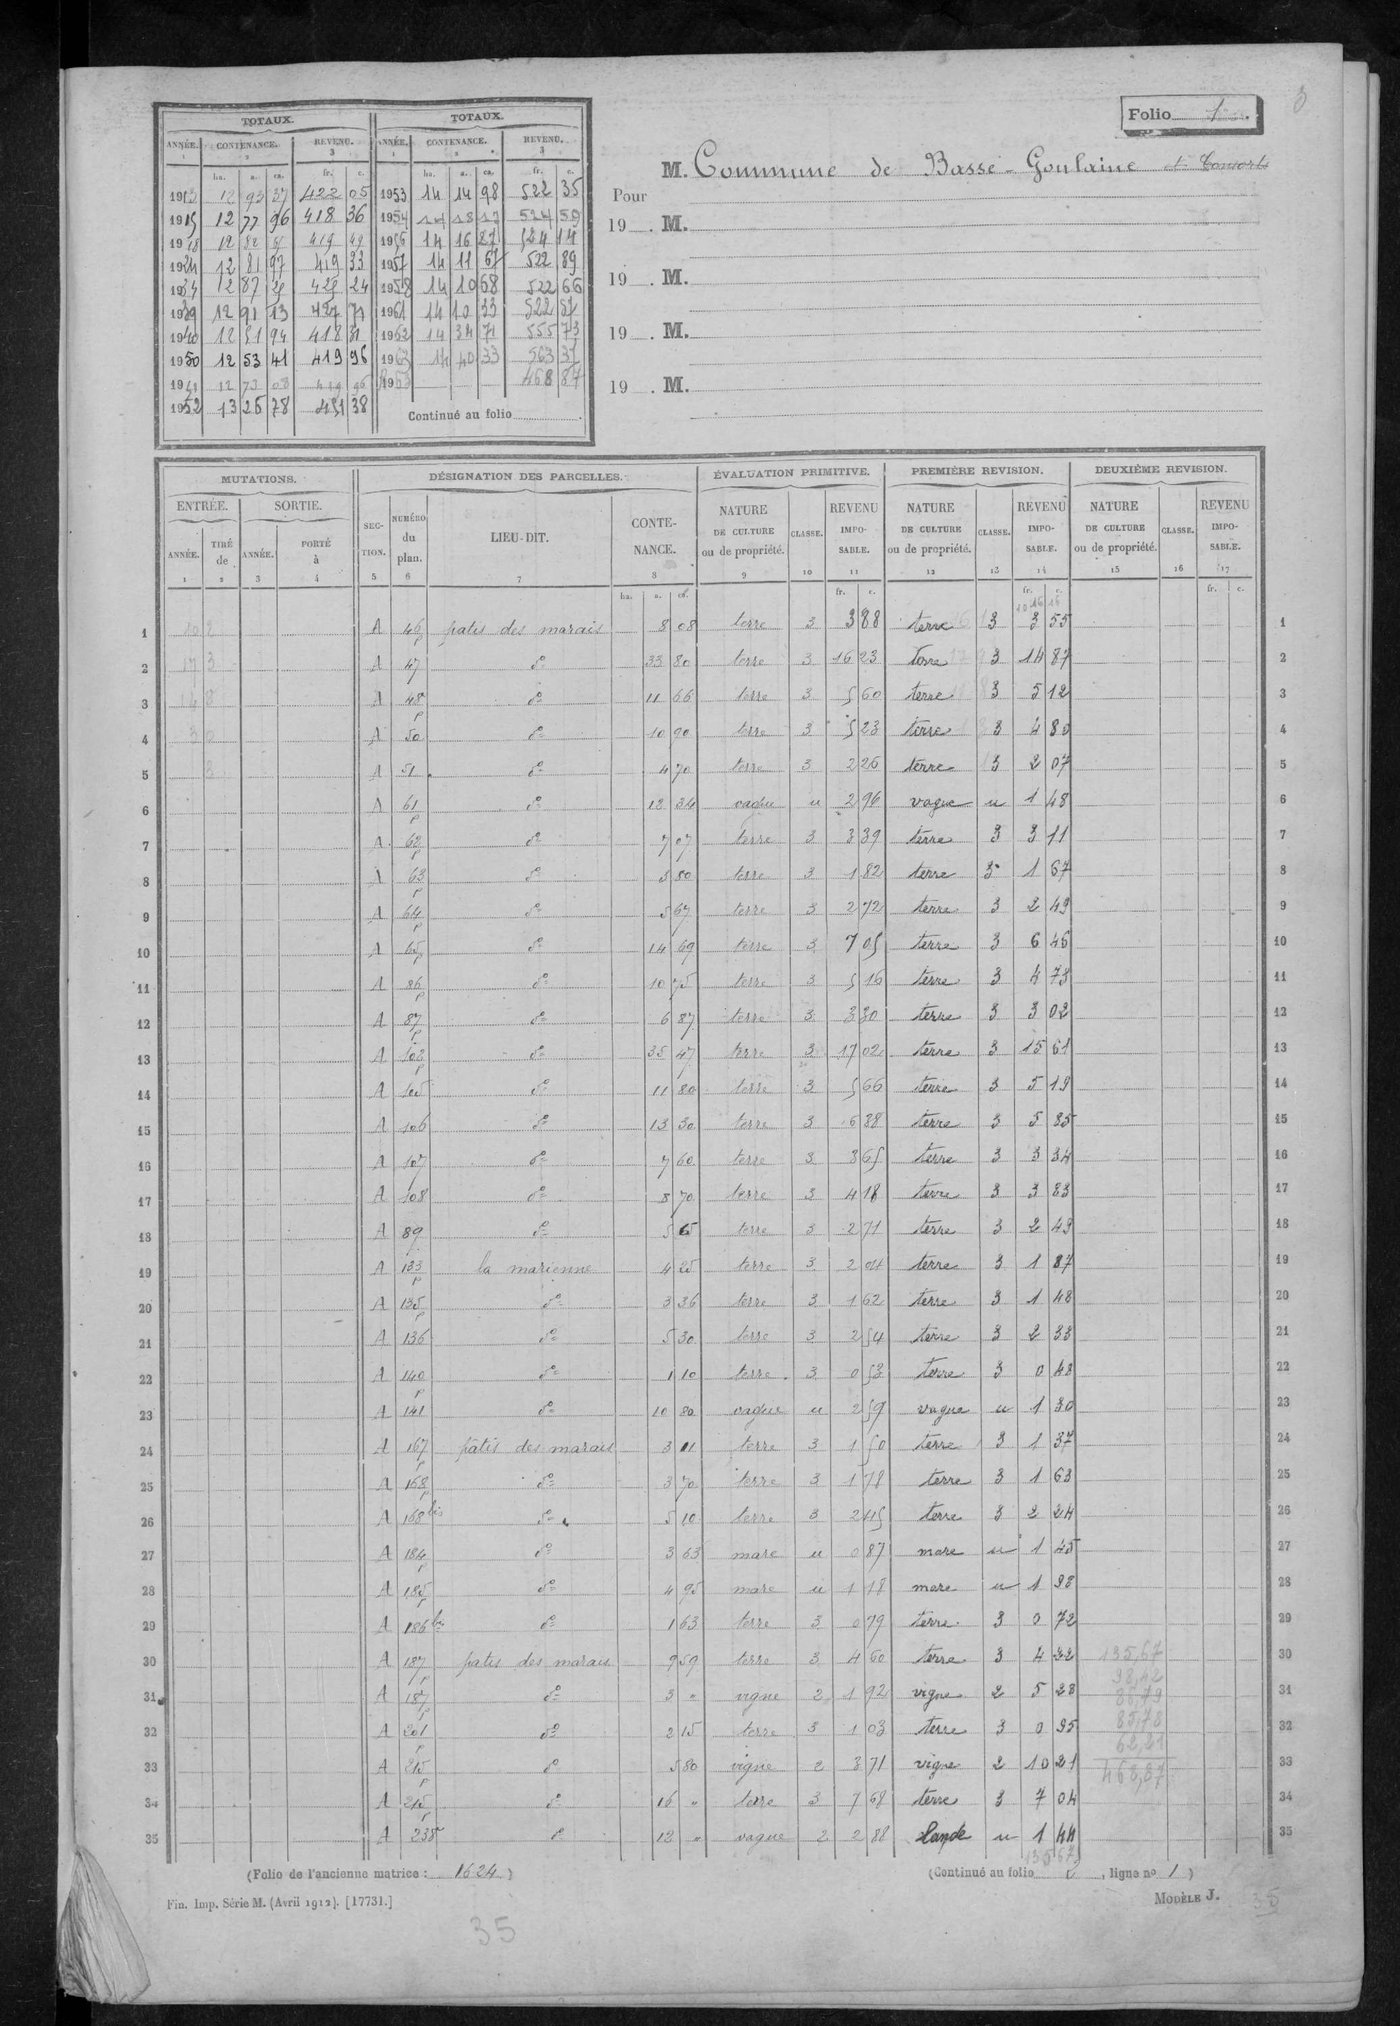 Folio 1.
TOTAUX. TOTAUX.
ANNÉE. CONTENANCE. REVENU. ANNÉE. CONTENANCE. REVENU.
1 2 3 1 2 3
ha. a. ca. fr. c. ha. a. ca. fr. c.
1913 12 93 37 422 05 1953 14 14 98 522 35
1915 12 77 96 418 36 1954 14 18 17 524 59
1918 12 82 419 49 1956 14 16 87 524 14
1924 12 81 97 419 33 1957 14 11 67 522 89
1934 12 87 425 24 1958 14 10 68 522 66
1939 12 91 13 427 71 1961 14 10 33 522 57
1940 12 51 94 418 31 1962 14 34 71 555 73
1950 12 53 41 419 96 1963 14 40 33 563 37
19 12 73 08 419 96 1963 468 87
1952 13 26 78 451 38 Continué au folio
M. Commune de Basse-Goulaine et Consorts
Pour
19 . M.
19 . M.
19 . M.
19 . M.
MUTATIONS. DÉSIGNATION DES PARCELLES. ÉVALUATION PRIMITIVE. PREMIÈRE REVISION. DEUXIÈME REVISION.
ENTRÉE. SORTIE. SECTION. NUMÉRO du plan. LIEU-DIT. CONTENANCE. NATURE DE CULTURE ou de propriété. CLASSE. REVENU IMPOSABLE. NATURE DE CULTURE ou de propriété. CLASSE. REVENU IMPOSABLE. NATURE DE CULTURE ou de propriété. CLASSE. REVENU IMPOSABLE.
ANNÉE. TIRÉ de ANNÉE. PORTÉ à
1 2 3 4 5 6 7 8 9 10 11 12 13 14 15 16 17
ha. a. ca. fr. c. fr. c. fr. c.
1 A 46 p patis des marais 8 08 terre 3 3 88 terre 3 3 55 1
2 A 47 do 33 80 terre 3 16 23 terre 3 14 87 2
3 A 48 p do 11 66 terre 3 5 60 terre 3 5 12 3
4 A 50 do 10 90 terre 3 5 23 terre 3 4 80 4
5 A 51 do 4 70 terre 3 2 26 terre 3 2 07 5
6 A 61 p do 12 34 vague u 2 96 vague u 1 48 6
7 A 62 p do 7 07 terre 3 3 39 terre 3 3 11 7
8 A 63 p do 3 80 terre 3 1 82 terre 3 1 67 8
9 A 64 p do 5 67 terre 3 2 72 terre 3 2 49 9
10 A 65 p do 14 69 terre 3 7 05 terre 3 6 46 10
11 A 86 p do 10 75 terre 3 5 16 terre 3 4 73 11
12 A 87 p do 6 87 terre 3 3 30 terre 3 3 02 12
13 A 102 p do 35 47 terre 3 17 02 terre 3 15 61 13
14 A 105 do 11 80 terre 3 5 66 terre 3 5 19 14
15 A 106 do 13 30 terre 3 6 38 terre 3 5 85 15
16 A 107 do 7 60 terre 3 3 65 terre 3 3 34 16
17 A 108 do 8 70 terre 3 4 18 terre 3 3 83 17
18 A 89 do 5 65 terre 3 2 71 terre 3 2 49 18
19 A 133 p la marienne 4 25 terre 3 2 04 terre 3 1 87 19
20 A 135 p do 3 36 terre 3 1 62 terre 3 1 48 20
21 A 136 do 5 30 terre 3 2 54 terre 3 2 33 21
22 A 140 p do 1 10 terre 3 0 53 terre 3 0 48 22
23 A 141 do 10 80 vague u 2 59 vague u 1 30 23
24 A 167 p patis des marais 3 11 terre 3 1 50 terre 3 1 37 24
25 A 168 p do 3 70 terre 3 1 78 terre 3 1 63 25
26 A 168 bis do 5 10 terre 3 2 45 terre 3 2 24 26
27 A 184 p do 3 63 mare u 0 87 mare u 1 45 27
28 A 185 p do 4 95 mare u 1 18 mare u 1 98 28
29 A 186 bis do 1 63 terre 3 0 79 terre 3 0 72 29
30 A 187 p patis des marais 9 59 terre 3 4 60 terre 3 4 22 135,67 30
98,42
31 A 187 p do 3 " vigne 2 1 92 vigne 2 5 28 86,79 31
32 A 201 p do 2 15 terre 3 1 03 terre 3 0 95 85,78 32
62,21
33 A 215 p do 5 80 vigne 2 3 71 vigne 2 10 21 468,87 33
34 A 215 p do 16 " terre 3 7 68 terre 3 7 04 34
35 A 238 do 12 " vague 2 2 88 Lande u 1 44 35
135 67
(Folio de l'ancienne matrice : 1624 ) (Continué au folio , ligne no 1 )
Fin. Imp. Série M. (Avril 1912). [17731.] MODÈLE J. 35
35